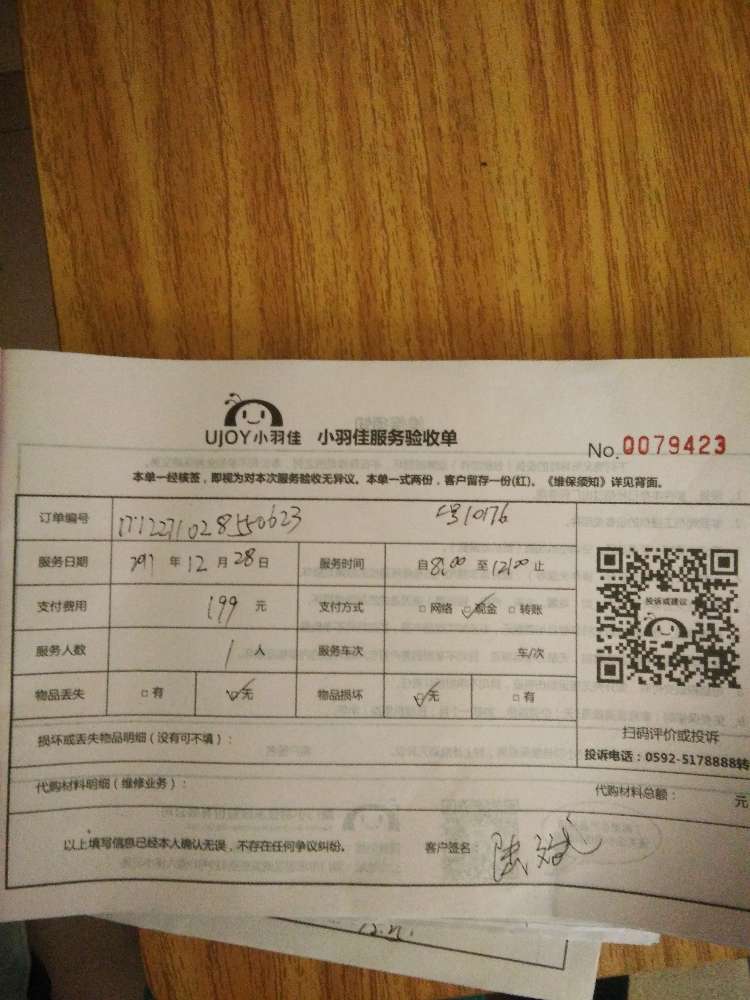 UJOY小羽佳 小羽佳服务验收单
No.0079423
本单一经核签，即视为对本次服务验收无异议。本单一式两份，客户留存一份(红)。《维保须知》详见背面。
订单编号 1712271028550623 10176
服务日期 年12月28日 服务时间 自8:00至12:00止
支付费用 199元 支付方式 □网络 ☑现金 □转账
服务人数 1人 服务车次 车/次
物品丢失 □有 ☑无 物品损坏 ☑无 □有
投诉或建议
扫码评价或投诉
损坏或丢失物品明细（没有可不填）：
投诉电话：0592-5178888转
代购材料明细（维修业务）： 代购材料总额： 元
以上填写信息已经本人确认无误，不存在任何争议纠纷。 客户签名：